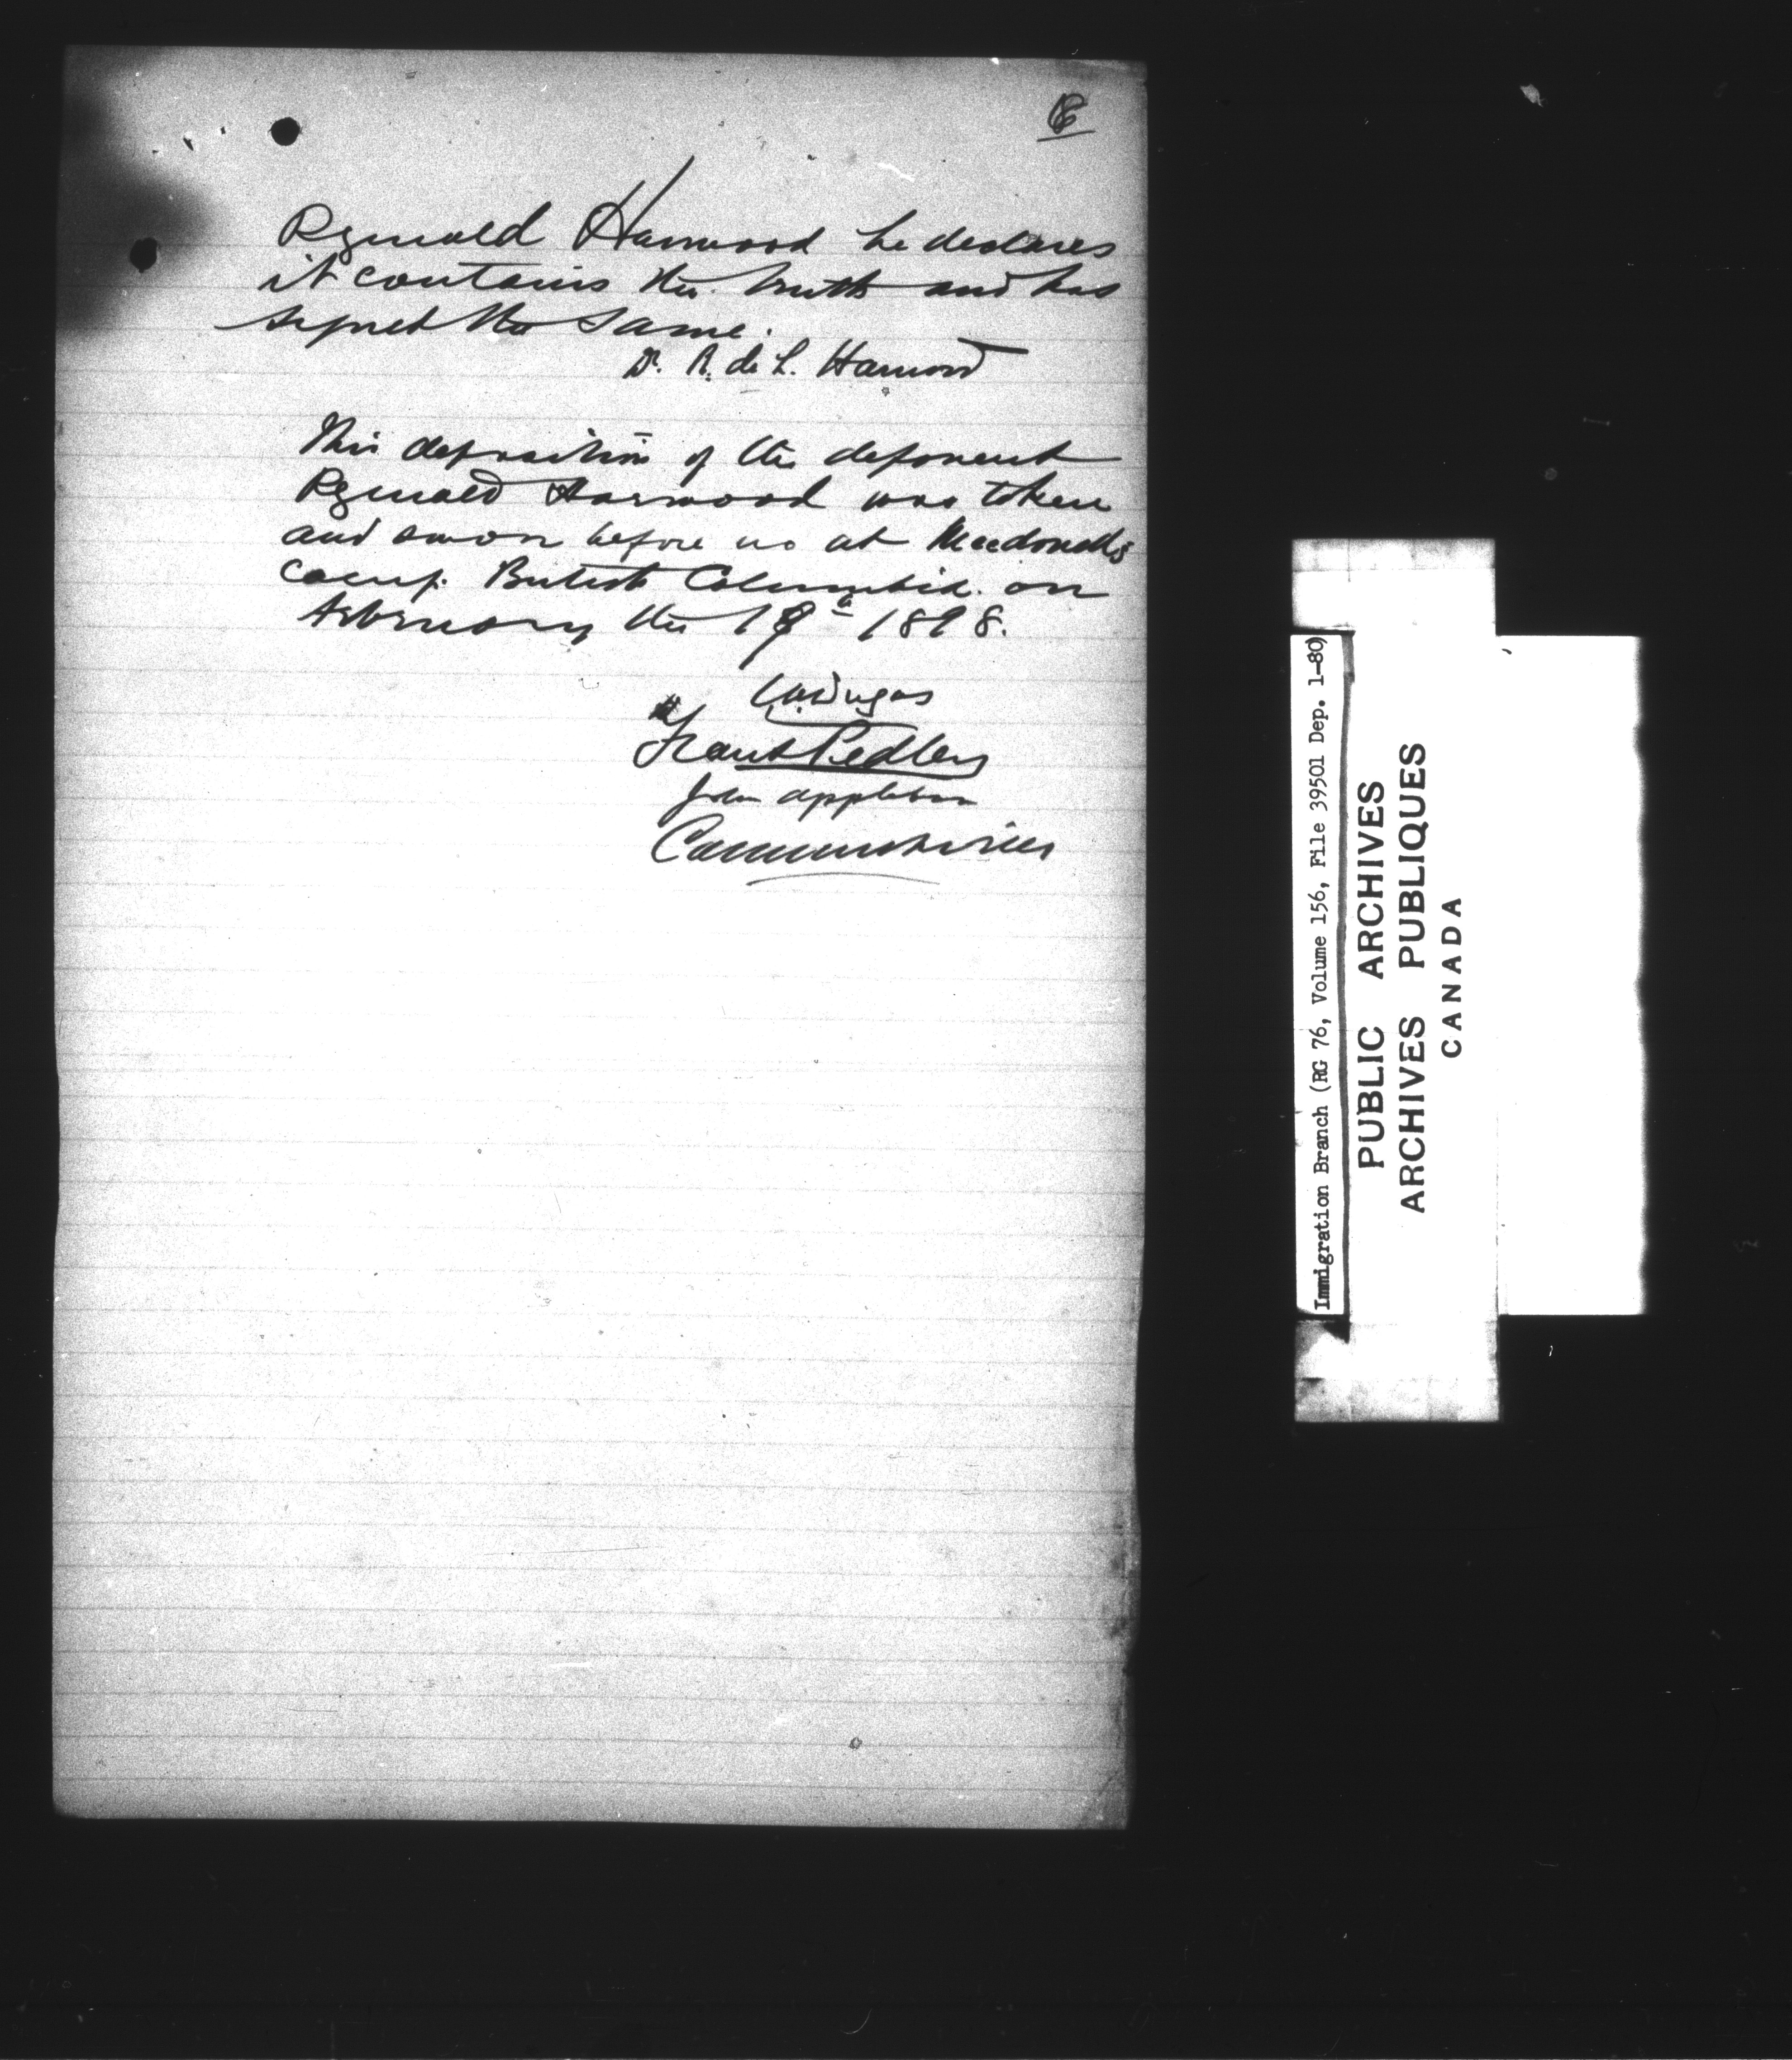 Reginald Harwood he declares
it contains the truth and has
signed the same.
Dr. R. de L. Harwood
This deposition of the deponent
Reginald Harwood was taken
and sworn before us at Macdonalds
camp. British Columbia. on
February the 1898.
Dugas
Frank Pedley
John Appleton
Commissioners
Immigration Branch (RG 76, Volume 156, File 39501 Dep. 1-80)
PUBLIC ARCHIVES
ARCHIVES PUBLIQUES
CANADA